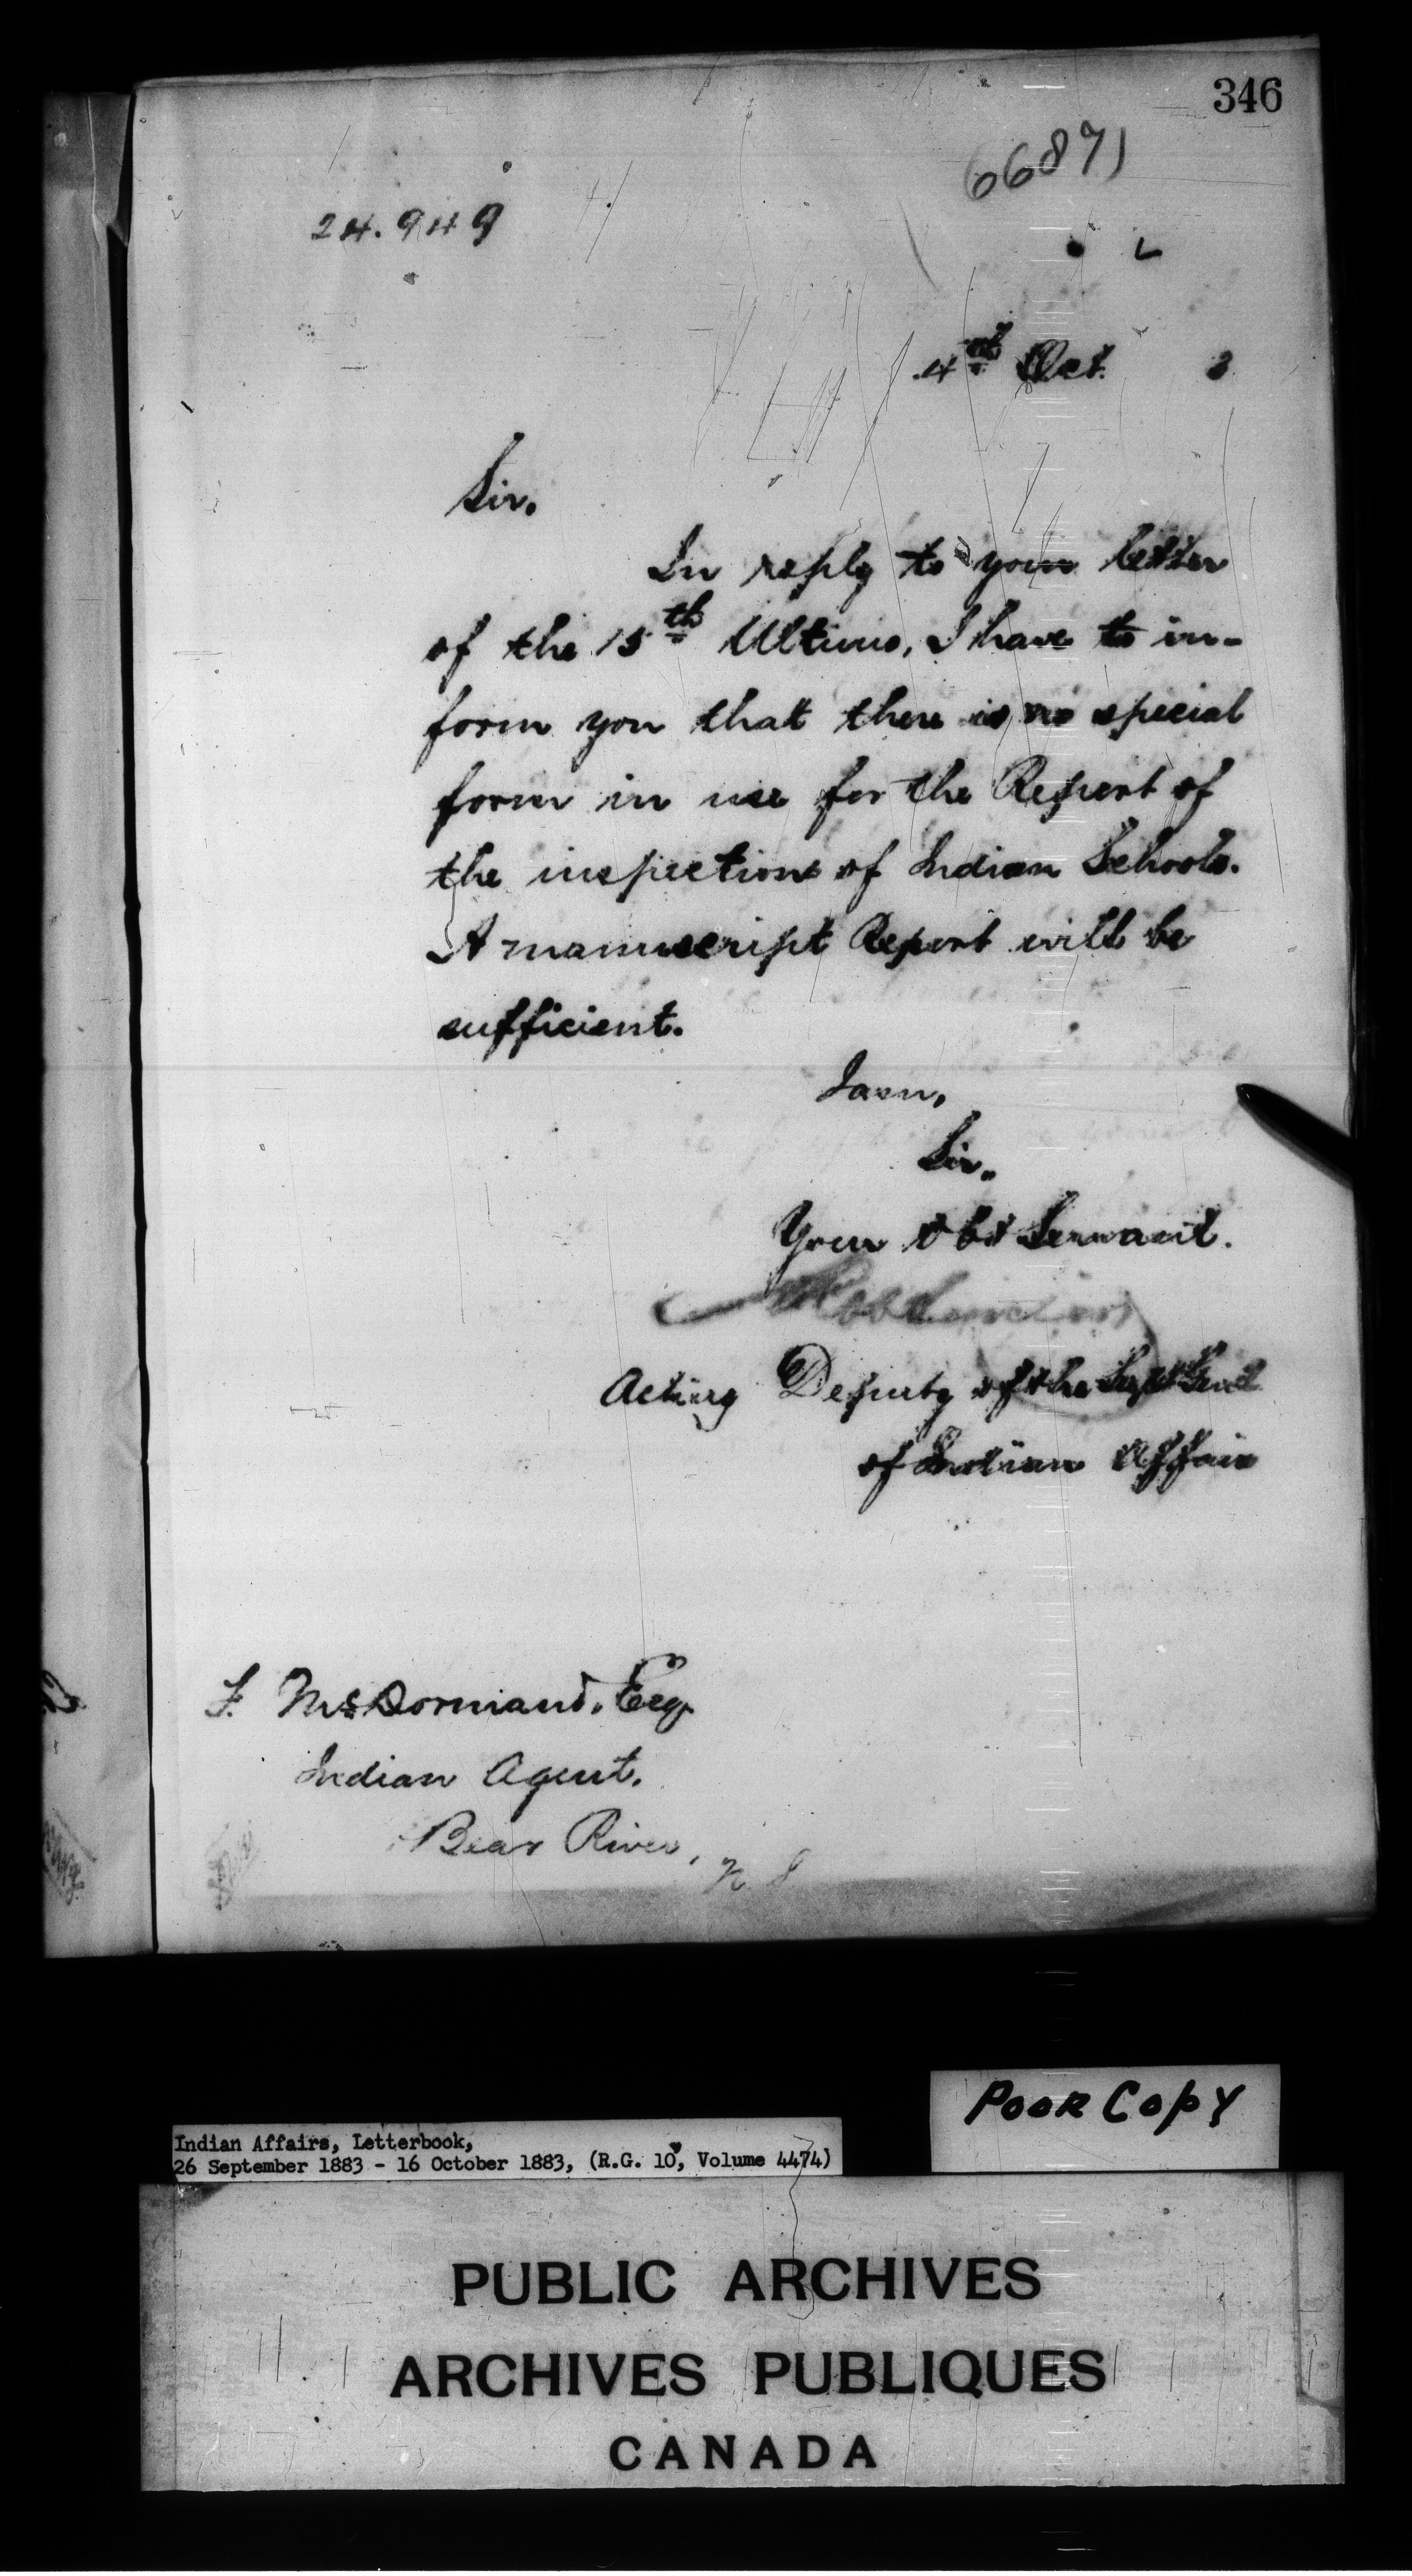 346
24.949
4th Oct. 3
Sir.
In reply to your letter
of the 15th Ultimo, I have to in-
form you that there is no special
form in use for the Report of
the inspection of Indian Schools.
A manuscript Report will be
sufficient.
I am,
Sir.
Your Obt Servant.
Acting Deputy of the Supt Genl
of Indian Affairs
F. McDormand, Esq.
Indian Agent.
Bear River, N. S
POOR COPY
Indian Affairs, Letterbook,
26 September 1883 - 16 October 1883, (R.G. 10, Volume 4474)
PUBLIC ARCHIVES
ARCHIVES PUBLIQUES
CANADA